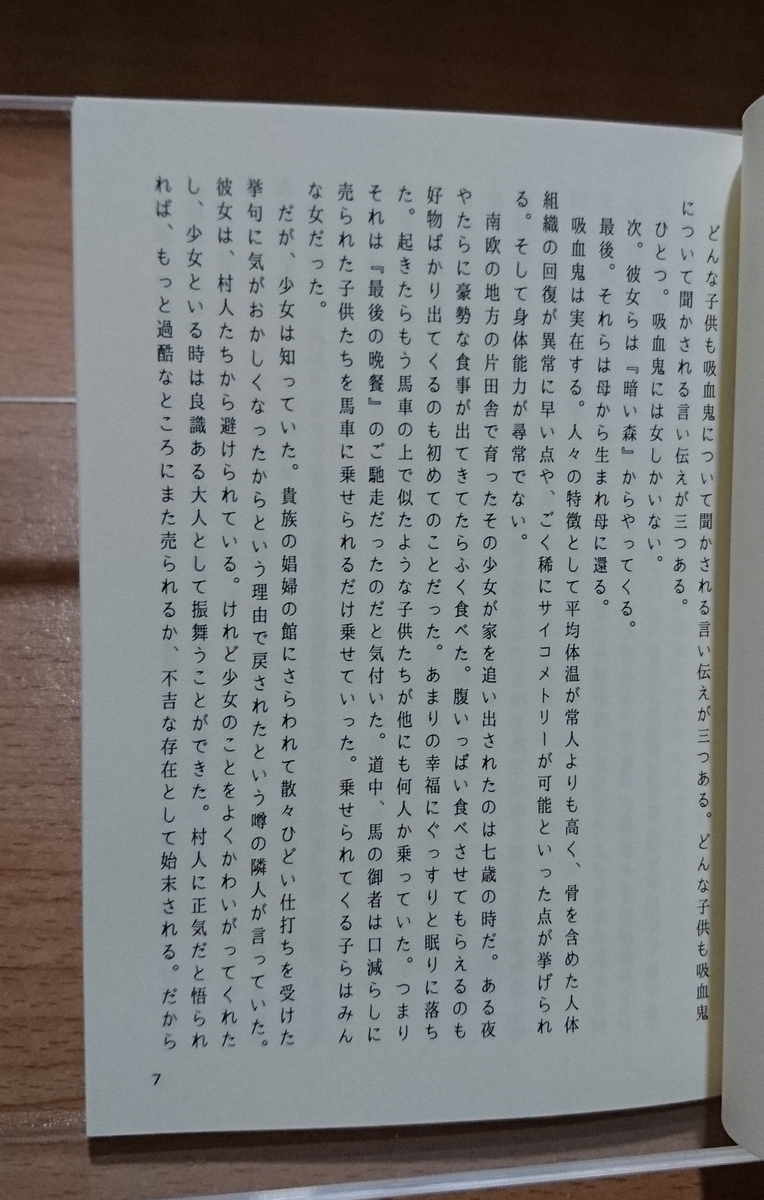 どんな子供も吸血鬼について聞かされる言い伝えが三つある。どんな子供も吸血鬼
について聞かされる言い伝えが三つある。
ひとつ。吸血鬼には女しかいない。
次。彼女らは『暗い森』からやってくる。
最後。それらは母から生まれ母に還る。
吸血鬼は実在する。人々の特徴として平均体温が常人よりも高く、骨を含めた人体
組織の回復が異常に早い点や、ごく稀にサイコメトリーが可能といった点が挙げられ
る。そして身体能力が尋常でない。
南欧の地方の片田舎で育ったその少女が家を追い出されたのは七歳の時だ。ある夜
やたらに豪勢な食事が出てきてたらふく食べた。腹いっぱい食べさせてもらえるのも
好物ばかり出てくるのも初めてのことだった。あまりの幸福にぐっすりと眠りに落ち
た。起きたらもう馬車の上で似たような子供たちが他にも何人か乗っていた。つまり
それは『最後の晩餐』のご馳走だったのだと気付いた。道中、馬の御者は口減らしに
売られた子供たちを馬車に乗せられるだけ乗せていった。乗せられてくる子らはみん
な女だった。
だが、少女は知っていた。貴族の娼婦の館にさらわれて散々ひどい仕打ちを受けた
挙句に気がおかしくなったからという理由で戻されたという噂の隣人が言っていた。
彼女は、村人たちから避けられている。けれど少女のことをよくかわいがってくれた
し、少女といる時は良識ある大人として振舞うことができた。村人に正気だと悟られ
れば、もっと過酷なところにまた売られるか、不吉な存在として始末される。だから
7